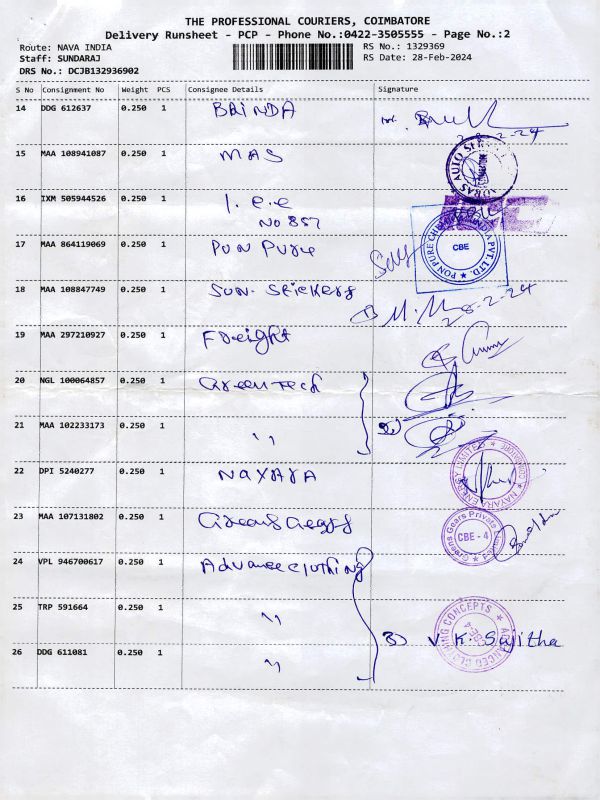 THE PROFESSIONAL COURIERS, COIMBATORE
Delivery Runsheet - PCP - Phone No.:0422-3505555 - Page No.:2
Route: NAVA INDIA
RS No.: 1329369
Staff: SUNDARAJ
RS Date: 28-Feb-2024
DRS No.: DCJB132936902
S No Consignment No Weight PCS Consignee Details Signature
14 DDG 612637 0.250 1 BRINDA
28-2-24
15 MAA 108941087 0.250 1 MAS
16 IXM 505944526 0.250 1 I.e.e
NO 857
17 MAA 864119069 0.250 1 PON PURE
PON PURE CHEMICAL INDIA PVT. LTD. CBE
18 MAA 108847749 0.250 1 Sun. Stickers
28-2-24
19 MAA 297210927 0.250 1 Freight
20 NGL 100064857 0.250 1 Green Tech
21 MAA 102233173 0.250 1 "
22 DPI 5240277 0.250 1 NAYARA
NAYARA ENERGY LIMITED
23 MAA 107131802 0.250 1 Greens Gears
Greens Gears Private Limited CBE - 4
24 VPL 946700617 0.250 1 Advance clothing
25 TRP 591664 0.250 1 "
ADVANCED CLOTHING CONCEPTS
V. K. Sajitha
26 DDG 611081 0.250 1 "